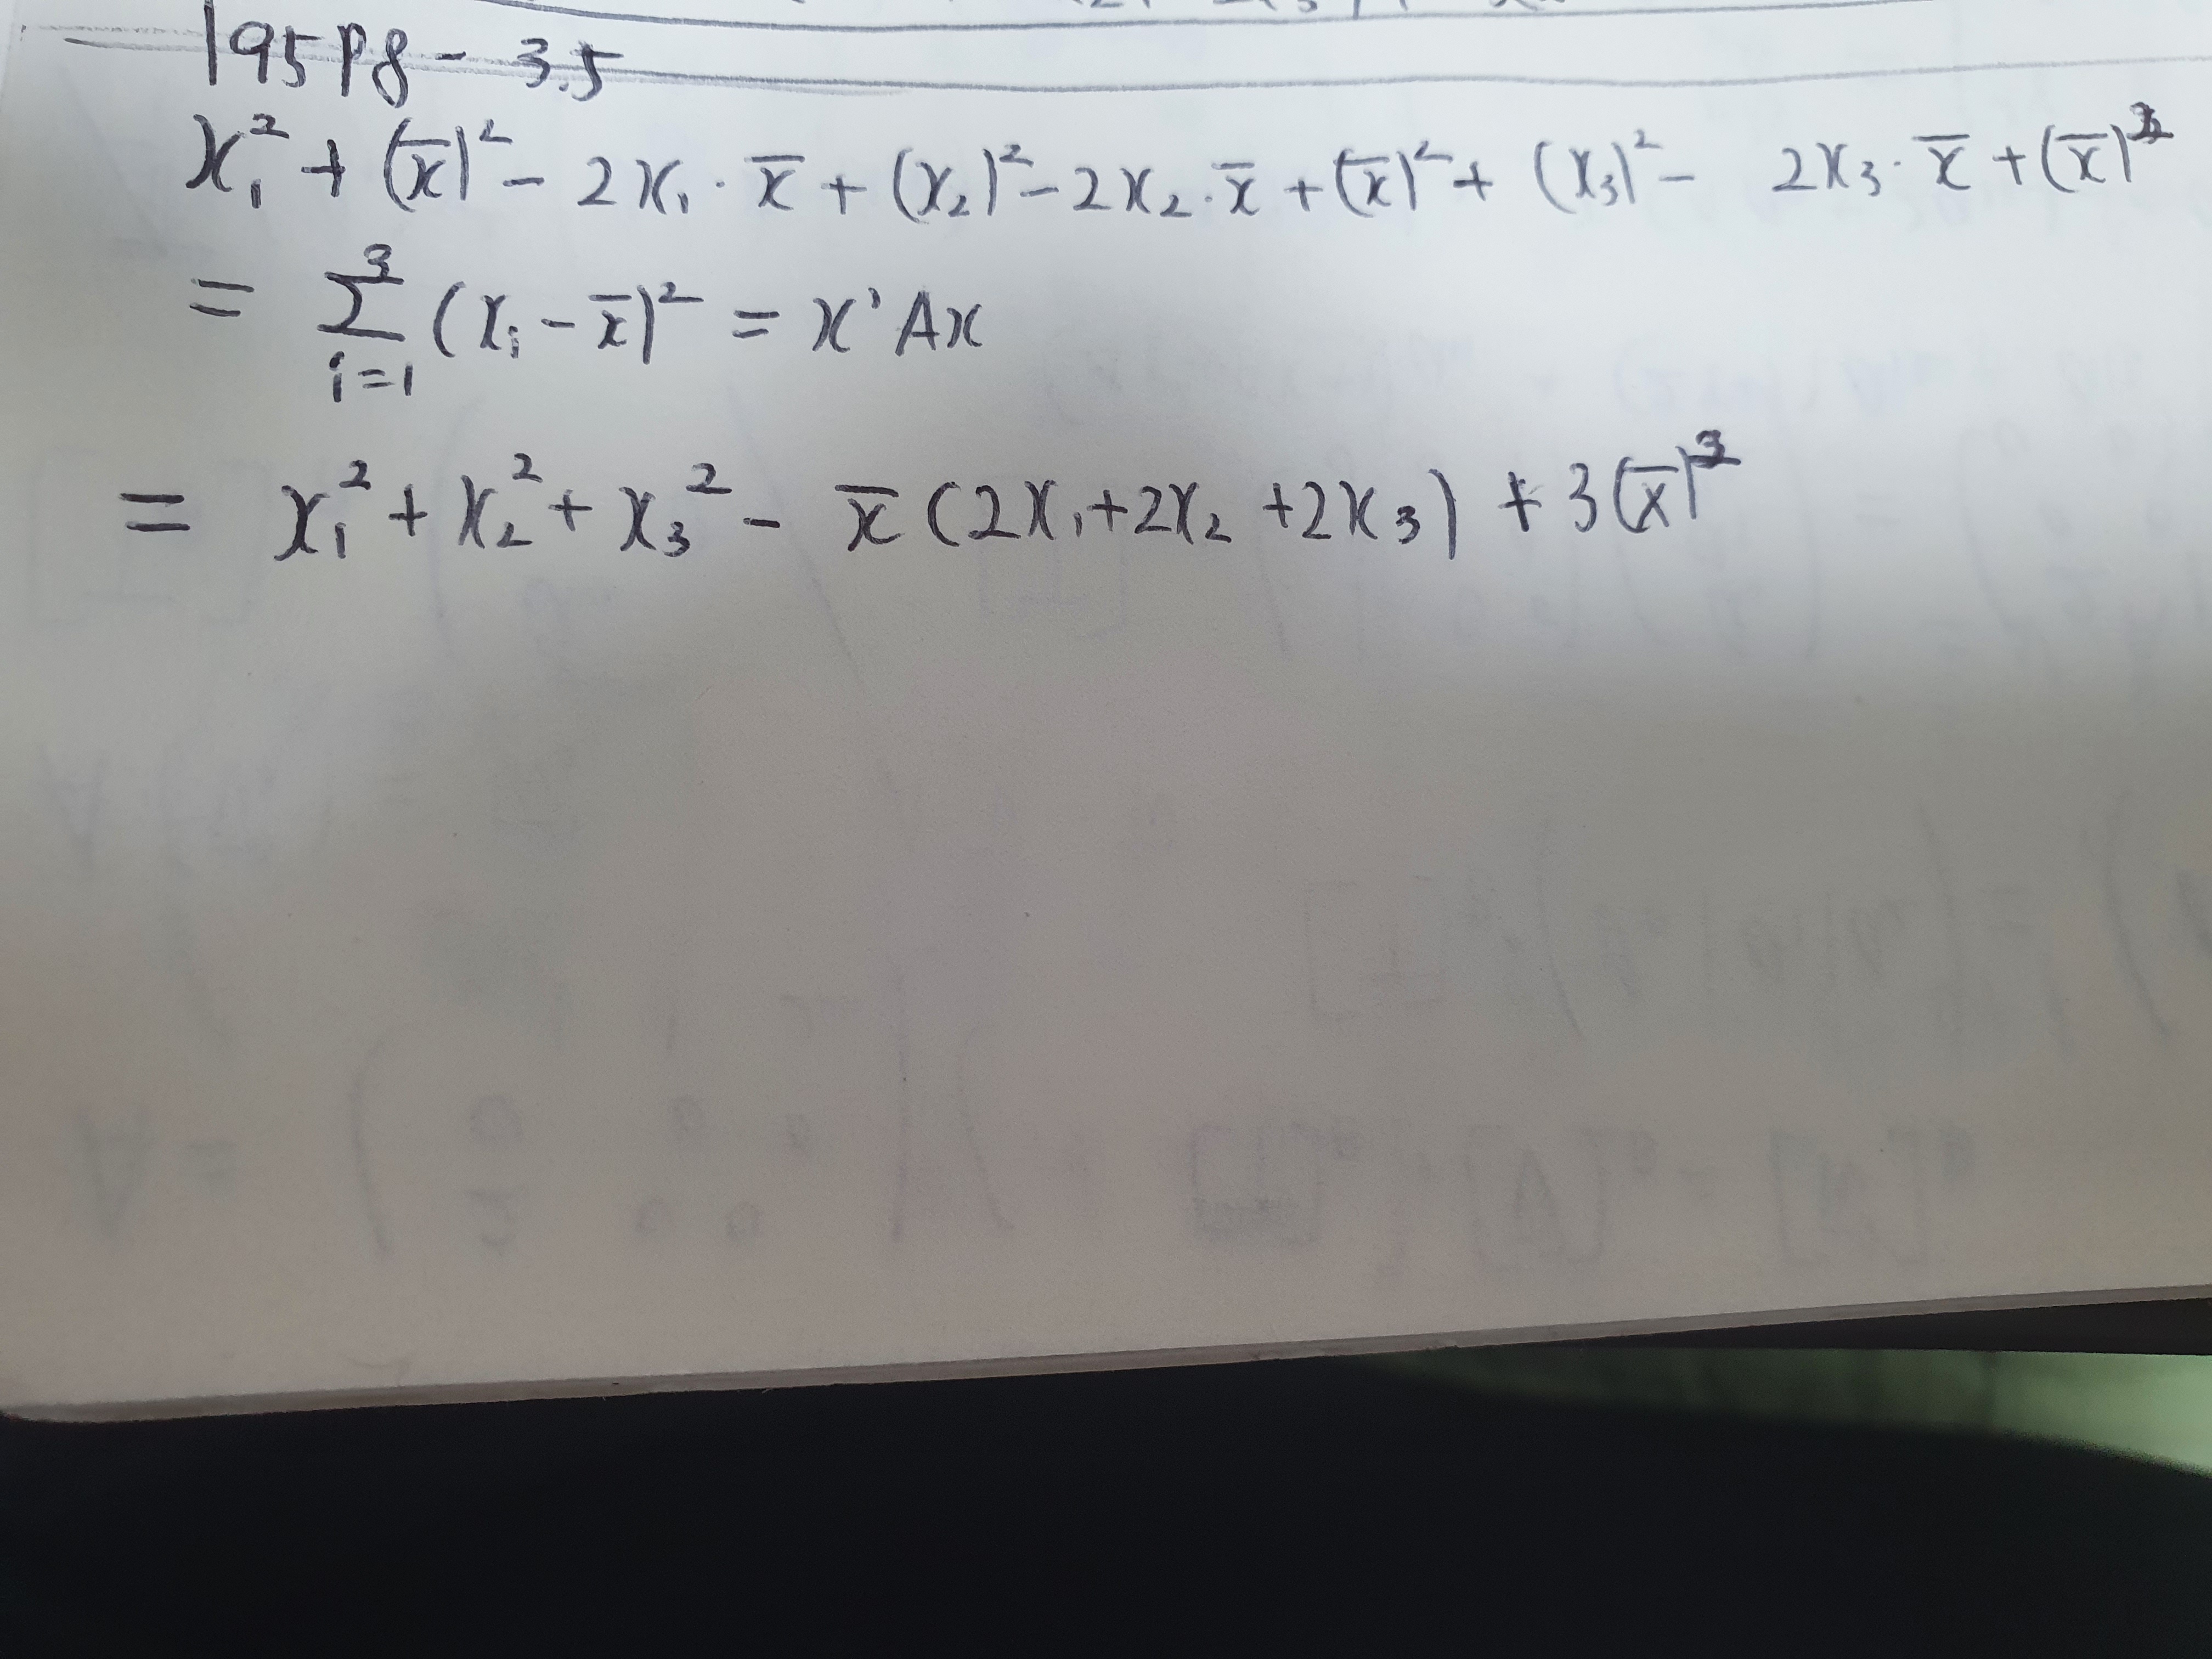 195pg - 3.5
x₁² + (x̄)² - 2x₁·x̄ + (x₂)² - 2x₂·x̄ + (x̄)² + (x₃)² - 2x₃·x̄ + (x̄)²
= ∑_{i=1}^{3} (xᵢ - x̄)² = x'Ax
= x₁² + x₂² + x₃² - x̄(2x₁+2x₂+2x₃) + 3(x̄)²